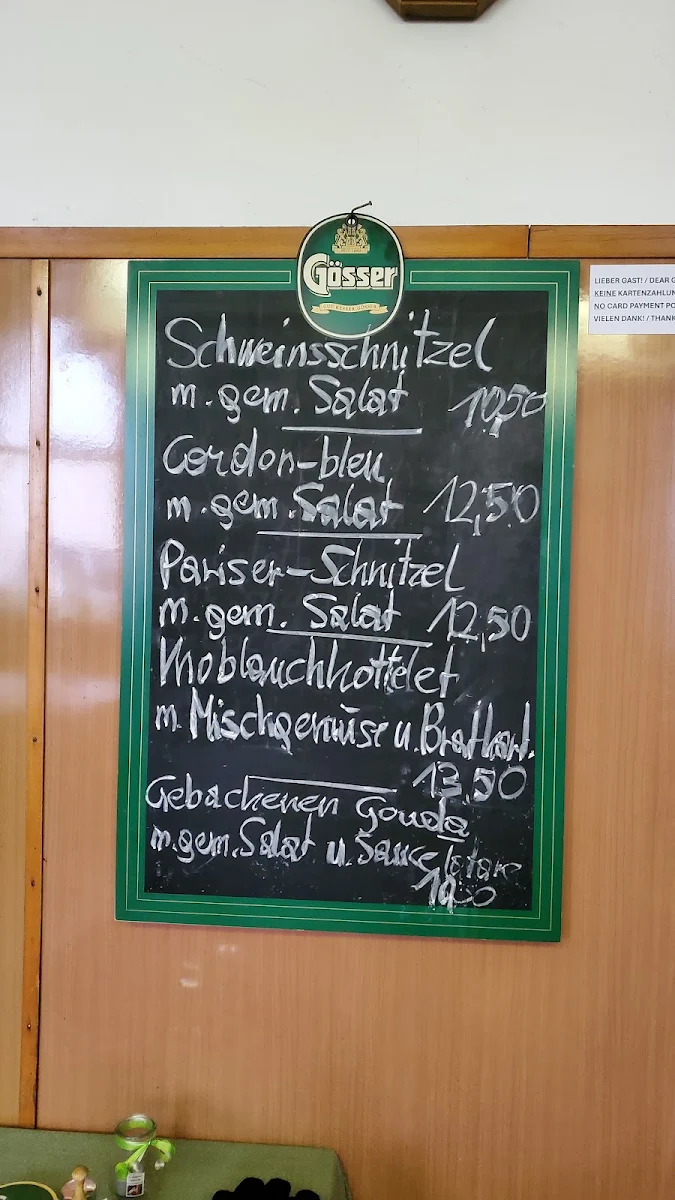 Gösser
GUT BESSER GÖSSER
Schweinsschnitzel
m. gem. Salat 10,50
Cordon-bleu
m. gem. Salat 12,50
Pariser-Schnitzel
m. gem. Salat 12,50
Knoblauchkottelet
m. Mischgemüse u. Bratkart.
13,50
Gebackenen Gouda
m. gem. Salat u. Sauce tatare
LIEBER GAST! / DEAR G
KEINE KARTENZAHLUN
NO CARD PAYMENT PO
VIELEN DANK! / THANK